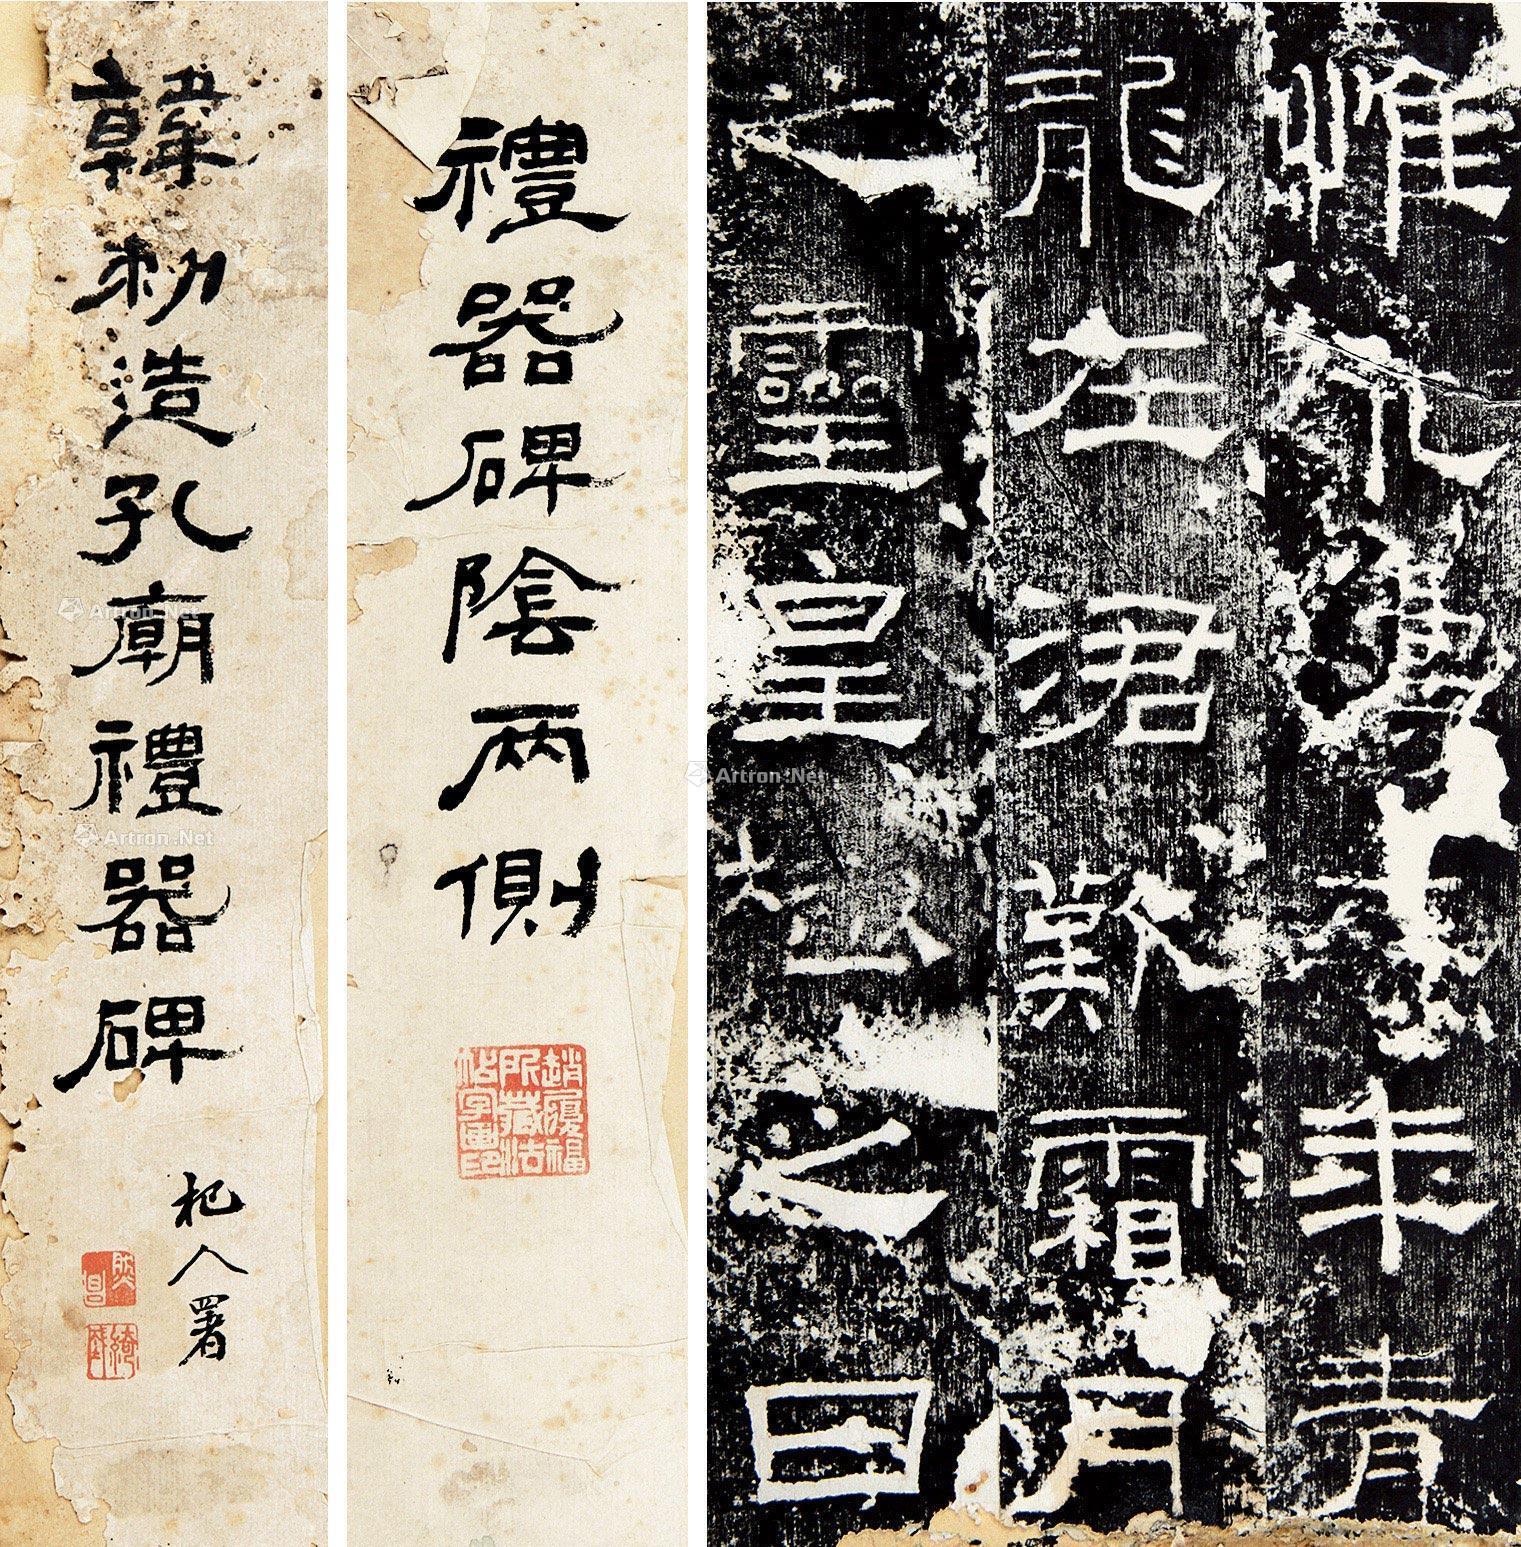 韓勑造孔廟禮器碑
杞人署
禮器碑陰兩側
趙履福
所藏法
帖字画印
惟永壽二年青
龍在涒歎霜月
之靈皇極之日
Artron.Net
Artron.Net
Artron.Net